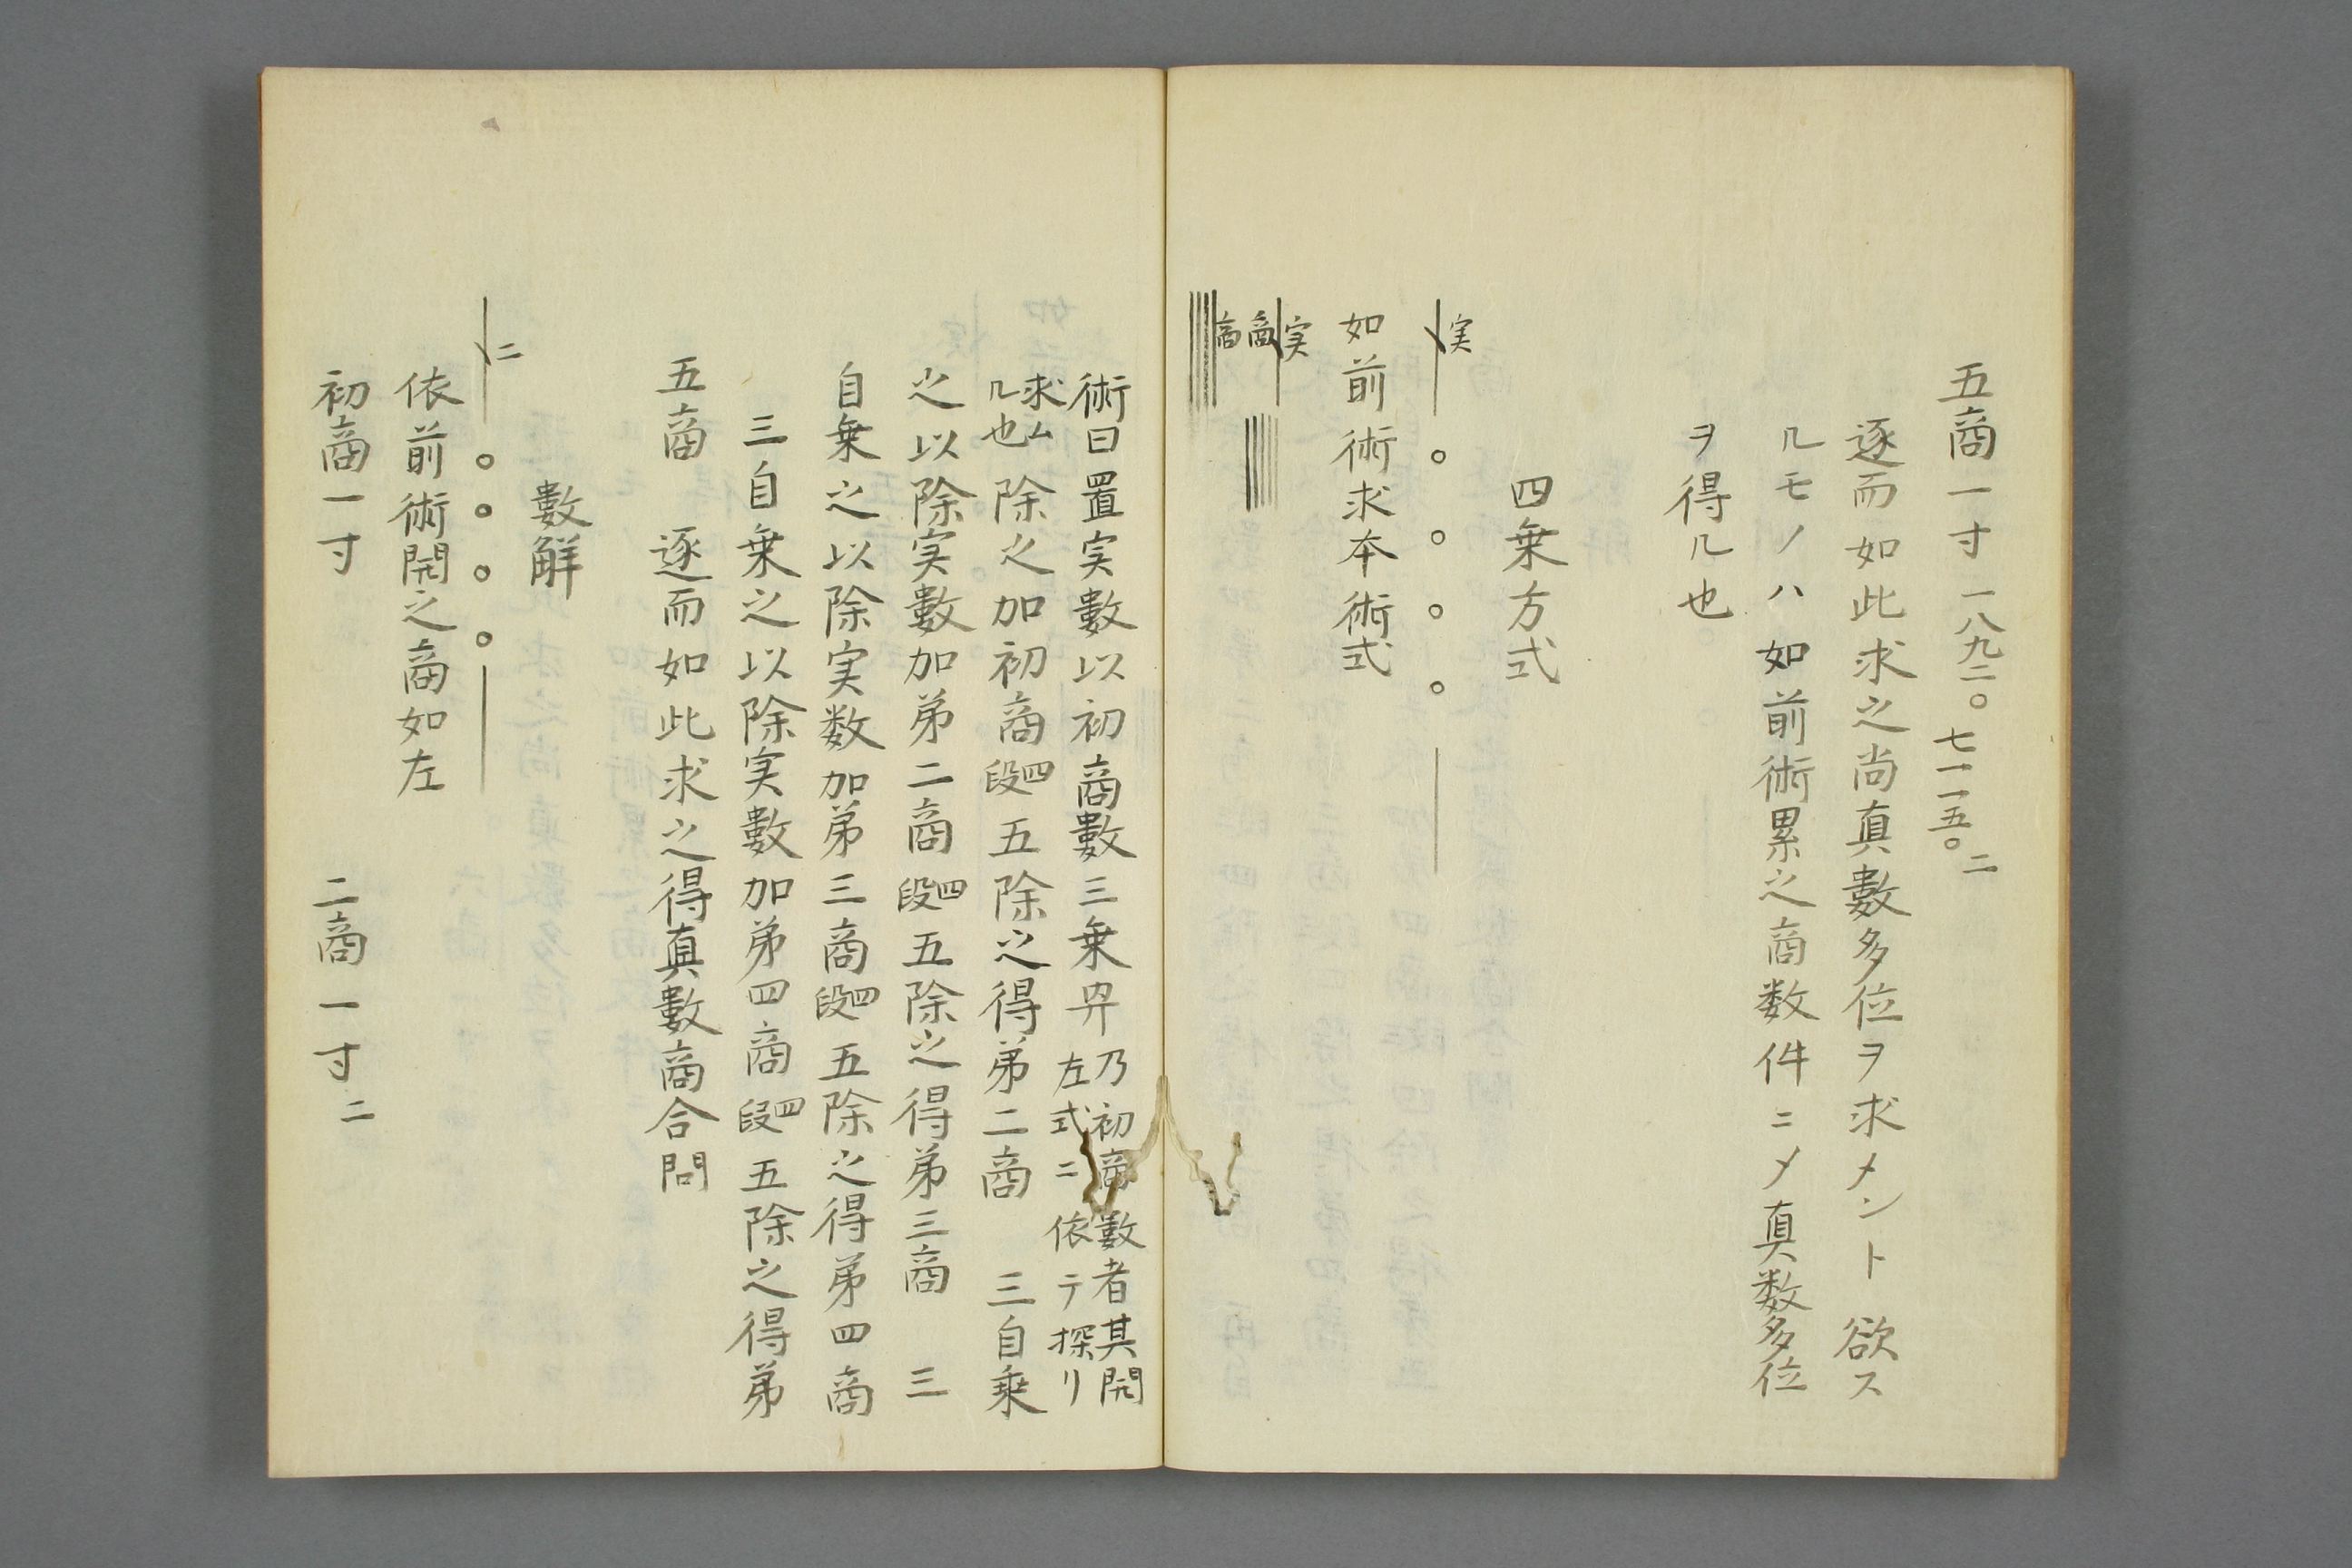 五商一寸一八九二〇七一一五〇二
逐而如此求之尚真數多位ヲ求メント欲ス
ルモノハ如前術累之商数件ニメ真数多位
ヲ得ル也
四乗方式
実
〇〇〇〇
如前術求本術式
実
商
商
術曰置実數以初商數三乗畀乃初商數者其開
左式ニ依テ探リ
求ム
ル也除之加初商四段五除之得弟二商 三自乗
之以除実數加弟二商四段五除之得弟三商 三
自乗之以除実数加弟三商四段五除之得弟四商
三自乗之以除実數加弟四商四段五除之得弟
五商 逐而如此求之得真數商合問
數觧
二
〇〇〇〇
依前術開之商如左
初商一寸 二商一寸二